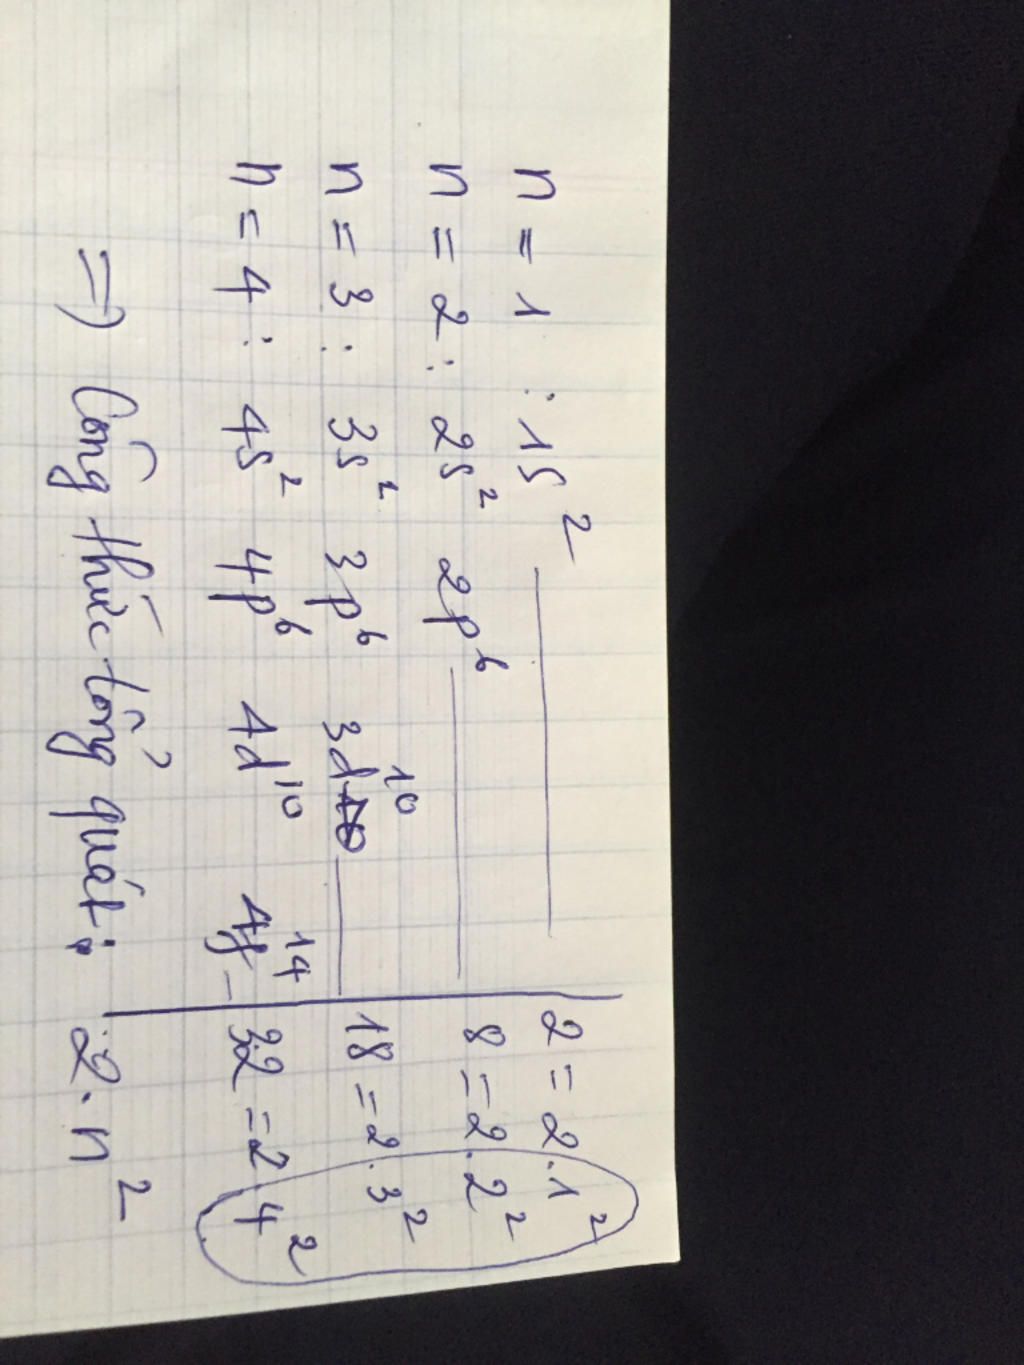 n = 1 : 1s² 2 = 2.1²
n = 2 : 2s² 2p⁶ 8 = 2.2²
n = 3 : 3s² 3p⁶ 3d¹⁰ 18 = 2.3²
n = 4 : 4s² 4p⁶ 4d¹⁰ 4f¹⁴ 32 = 2.4²
=> Công thức tổng quát: 2.n²